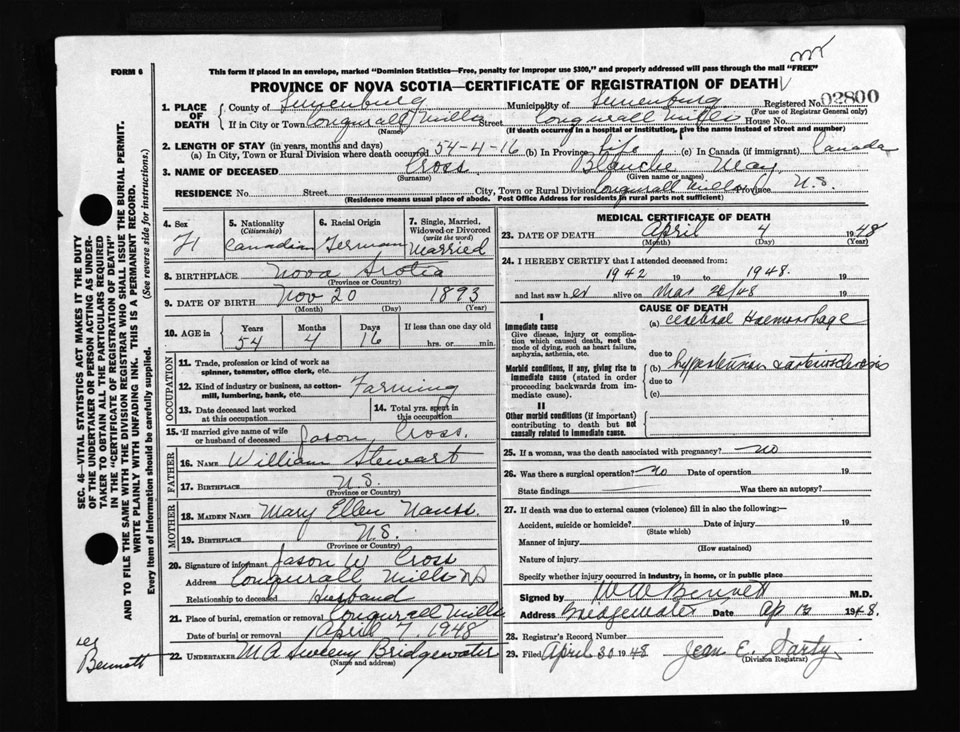 FORM 6
This form if placed in an envelope, marked "Dominion Statistics—Free, penalty for improper use $300," and properly addressed will pass through the mail "FREE"
PROVINCE OF NOVA SCOTIA—CERTIFICATE OF REGISTRATION OF DEATH
1. PLACE OF DEATH
County of Lunenburg Municipality of Lunenburg Registered No. 02800
(For use of Registrar General only)
If in City or Town Conquerall Mills Street Conquerall Mills House No.
(Name) (If death occurred in a hospital or institution, give the name instead of street and number)
2. LENGTH OF STAY (in years, months and days)
(a) In City, Town or Rural Division where death occurred 54-4-16 (b) In Province life (c) In Canada (if immigrant) Canada
3. NAME OF DECEASED Cross Blanche May
(Surname) (Given name or names)
RESIDENCE No. Street City, Town or Rural Division Conquerall Mills Province N.S.
(Residence means usual place of abode. Post Office Address for residents in rural parts not sufficient)
4. Sex 5. Nationality (Citizenship) 6. Racial Origin 7. Single, Married, Widowed or Divorced (write the word)
F Canadian German Married
8. BIRTHPLACE Nova Scotia
(Province or Country)
9. DATE OF BIRTH Nov 20 1893
(Month) (Day) (Year)
10. AGE in Years Months Days If less than one day old
54 4 16 hrs. or min.
OCCUPATION
11. Trade, profession or kind of work as spinner, teamster, office clerk, etc.
12. Kind of industry or business, as cotton-mill, lumbering, bank, etc. Farming
13. Date deceased last worked at this occupation
14. Total yrs. spent in this occupation
15. If married give name of wife or husband of deceased Jason Cross.
FATHER
16. NAME William Stewart
17. BIRTHPLACE N.S.
(Province or Country)
MOTHER
18. MAIDEN NAME Mary Ellen Nauss
19. BIRTHPLACE N.S.
(Province or Country)
20. Signature of informant Jason W Cross
Address Conquerall Mills NS
Relationship to deceased Husband
21. Place of burial, cremation or removal Conquerall Mills
Date of burial or removal April 7, 1948
22. UNDERTAKER M A Sweeny Bridgewater
(Name and address)
MEDICAL CERTIFICATE OF DEATH
23. DATE OF DEATH April 4 1948
(Month) (Day) (Year)
24. I HEREBY CERTIFY that I attended deceased from:
1942 19 to 1948. 19
and last saw her alive on Mar 28/48 19
CAUSE OF DEATH
I
Immediate cause
Give disease, injury or complication which caused death, not the mode of dying, such as heart failure, asphyxia, asthenia, etc.
(a) Cerebral Haemorrhage
due to
Morbid conditions, if any, giving rise to immediate cause (stated in order proceeding backwards from immediate cause).
(b) hypertension & arteriosclerosis
due to
(c)
II
Other morbid conditions (if important) contributing to death but not causally related to immediate cause.
25. If a woman, was the death associated with pregnancy? no
26. Was there a surgical operation? no Date of operation 19
State findings Was there an autopsy?
27. If death was due to external causes (violence) fill in also the following:—
Accident, suicide or homicide? Date of injury 19
(State which)
Manner of injury
(How sustained)
Nature of injury
Specify whether injury occurred in industry, in home, or in public place
Signed by W W Bennett M.D.
Address Bridgewater Date Ap 1948.
28. Registrar's Record Number
29. Filed April 30 1948 Jean E. Sarty
(Division Registrar)
SEC. 46—VITAL STATISTICS ACT MAKES IT THE DUTY
OF THE UNDERTAKER OR PERSON ACTING AS UNDER-
TAKER TO OBTAIN ALL THE PARTICULARS REQUIRED
IN THE "CERTIFICATE OF REGISTRATION OF DEATH"
AND TO FILE THE SAME WITH THE DIVISION REGISTRAR WHO SHALL ISSUE THE BURIAL PERMIT.
WRITE PLAINLY WITH UNFADING INK. THIS IS A PERMANENT RECORD.
Every item of information should be carefully supplied. (See reverse side for instructions.)
Bennett